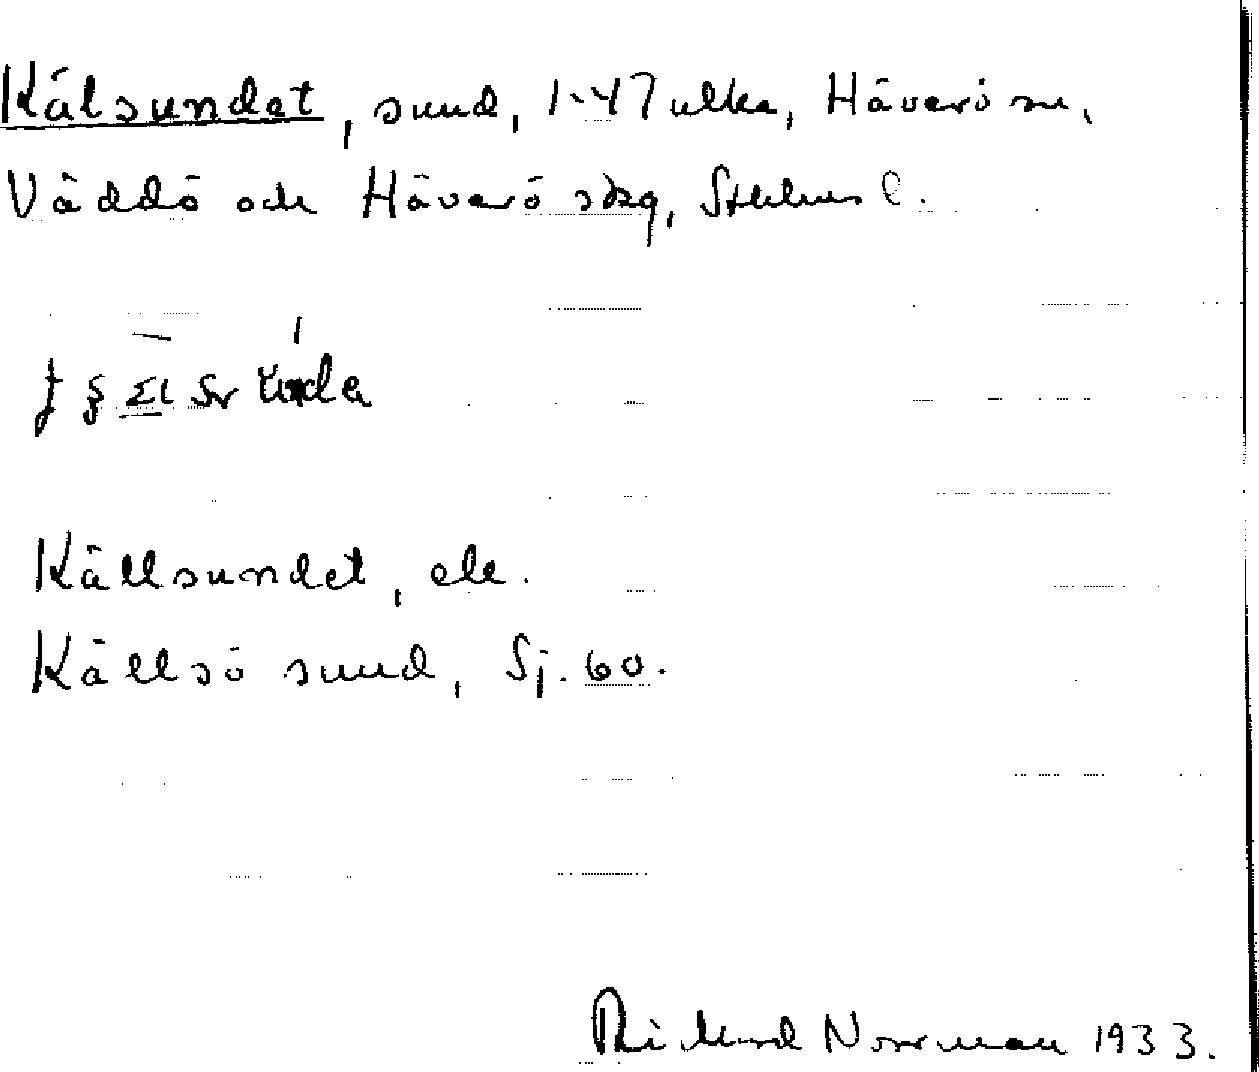 Kälsundet, sund, 1-47 ulka, Häverö sn,
Väddö och Häverö skg, Sthlms l.
Källsundet, ek.
Källsö sund, Sj. 60.
Rickard Norrman 1933.